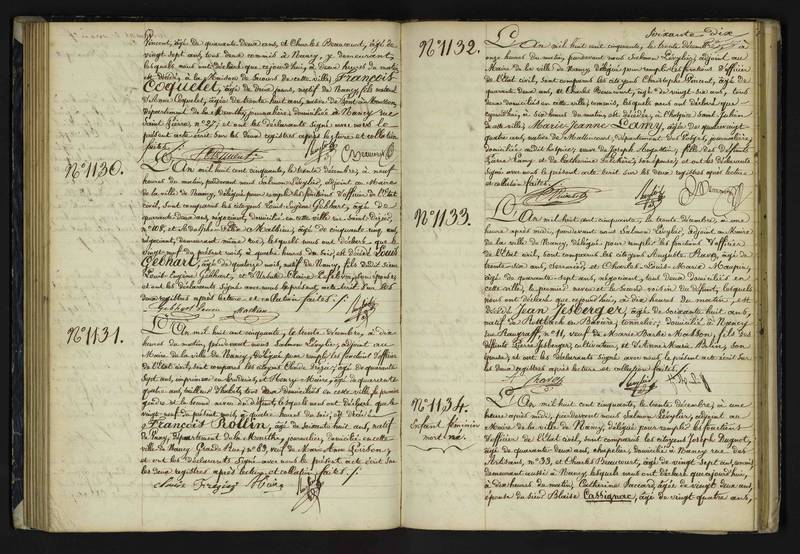 Vincent, âgé de quarante deux ans, et Charles Beaucourt, âgé de
vingt sept ans, tous deux commis à Nancy, y demeurant,
lesquels nous ont déclaré que cejourd'hui, à deux heures du matin
est décédé, à la Maison de Secours de cette ville, François
Coquelet, âgé de deux jours, natif de Nancy, fils naturel
d'Anne Coquelet, âgée de trente huit ans, native de Pont-à-Mousson,
département de la Meurthe, journalière, domiciliée à Nancy rue
Saint Pierre, n° 27, et ont les déclarants signé avec nous le
présent acte écrit sur les deux registres après lecture et collation
faites.
N° 1130.
L'An mil huit cent cinquante, le trente décembre, à neuf
heures du matin, pardevant nous Salmon Lévylier, adjoint au Maire
de la ville de Nancy, délégué pour remplir les fonctions d'officier de l'état
civil, sont comparus les citoyens Louis Eugène Gebhart, âgé de
quarante deux ans, négociant, domicilié en cette ville rue Saint Dizier,
n° 108, et Mathieu, âgé de cinquante cinq ans,
négociant, demeurant même rue, lesquels nous ont déclaré que le
vingt neuf du présent mois, à quatre heures du soir, est décédé Louis
Gebhart, âgé de quatorze mois, natif de Nancy, fils dudit sieur
Louis Eugène Gebhart, et son épouse;
et ont les déclarants signé avec nous le présent acte écrit sur les
deux registres après lecture et collation faites.
N° 1131.
L'An mil huit cent cinquante, le trente décembre, à dix
heures du matin, pardevant nous Salmon Lévylier, adjoint au
Maire de la ville de Nancy, délégué pour remplir les fonctions d'officier
de l'état civil, sont comparus les citoyens Claude, âgé de quarante
sept ans, et Henry Maire, âgé de quarante
quatre ans, tailleur d'habits, tous deux domiciliés en cette ville, le premier
gendre et le second voisin du défunt, lesquels nous ont déclaré que le
vingt neuf du présent mois, à quatre heures du soir, est décédé
François Rollin, âgé de soixante huit ans, natif
de Nancy, département de la Meurthe, journalier, domicilié en cette
ville de Nancy Grande Rue, n° 69, veuf de Marie Anne;
et ont les déclarants signé avec nous le présent acte écrit sur
les deux registres après lecture et collation faites.
Soixante dix
N° 1132.
L'An mil huit cent cinquante, le trente décembre, à
onze heures du matin, pardevant nous Salmon Lévylier, adjoint au
Maire de la ville de Nancy, délégué pour remplir les fonctions d'officier
de l'état civil, sont comparus les citoyens Christophe Vincent, âgé de
quarante deux ans, et Charles Beaucourt, âgé de vingt six ans, tous
deux domiciliés en cette ville, commis, lesquels nous ont déclaré que
cejourd'hui, à six heures du matin est décédée, à l'hospice Saint Julien
de cette ville, Marie-Jeanne Lamy, âgée de quatre vingt
quatre ans, native de, département des Vosges, journalière,
domiciliée audit hospice, veuve de Joseph Augustin, fille des défunts
Pierre Lamy et de Catherine, son épouse; et ont les déclarants
signé avec nous le présent acte écrit sur les deux registres après lecture
et collation faites.
N° 1133.
L'An mil huit cent cinquante, le trente décembre, à une
heure après midi, pardevant nous Salmon Lévylier, adjoint au Maire
de la ville de Nancy, délégué pour remplir les fonctions d'officier
de l'état civil, sont comparus les citoyens Auguste, âgé de
trente-six ans, serrurier, et Charles Louis Marie,
âgé de quarante sept ans, négociant, tous deux domiciliés en
cette ville, le premier neveu et le second voisin du défunt, lesquels
nous ont déclaré que cejourd'hui, à dix heures du matin, est
décédé Jean Jesberger, âgé de soixante huit ans,
natif de en Bavière, tonnelier, domicilié à Nancy
rue, n° 11, veuf de Marie Barbe, fils des
défunts Pierre Jesberger, cultivateur, et d'Anne Marie, son
épouse; et ont les déclarants signé avec nous le présent acte écrit sur
les deux registres après lecture et collation faites.
N° 1134.
Enfant féminin
mort né.
L'An mil huit cent cinquante, le trente décembre, à une
heure après midi, pardevant nous Salmon Lévylier, adjoint au
Maire de la ville de Nancy, délégué pour remplir les fonctions
d'officier de l'état civil, sont comparus les citoyens Joseph Duguet,
âgé de quarante deux ans, chapelier, domicilié à Nancy rue des
Artisans, n° 33, et Charles Beaucourt, âgé de vingt sept ans, commis
demeurant aussi à Nancy, lesquels nous ont déclaré que cejourd'hui,
à dix heures du matin, Catherine, âgée de vingt deux ans,
épouse du sieur Blaise Cassignac, âgé de vingt quatre ans,